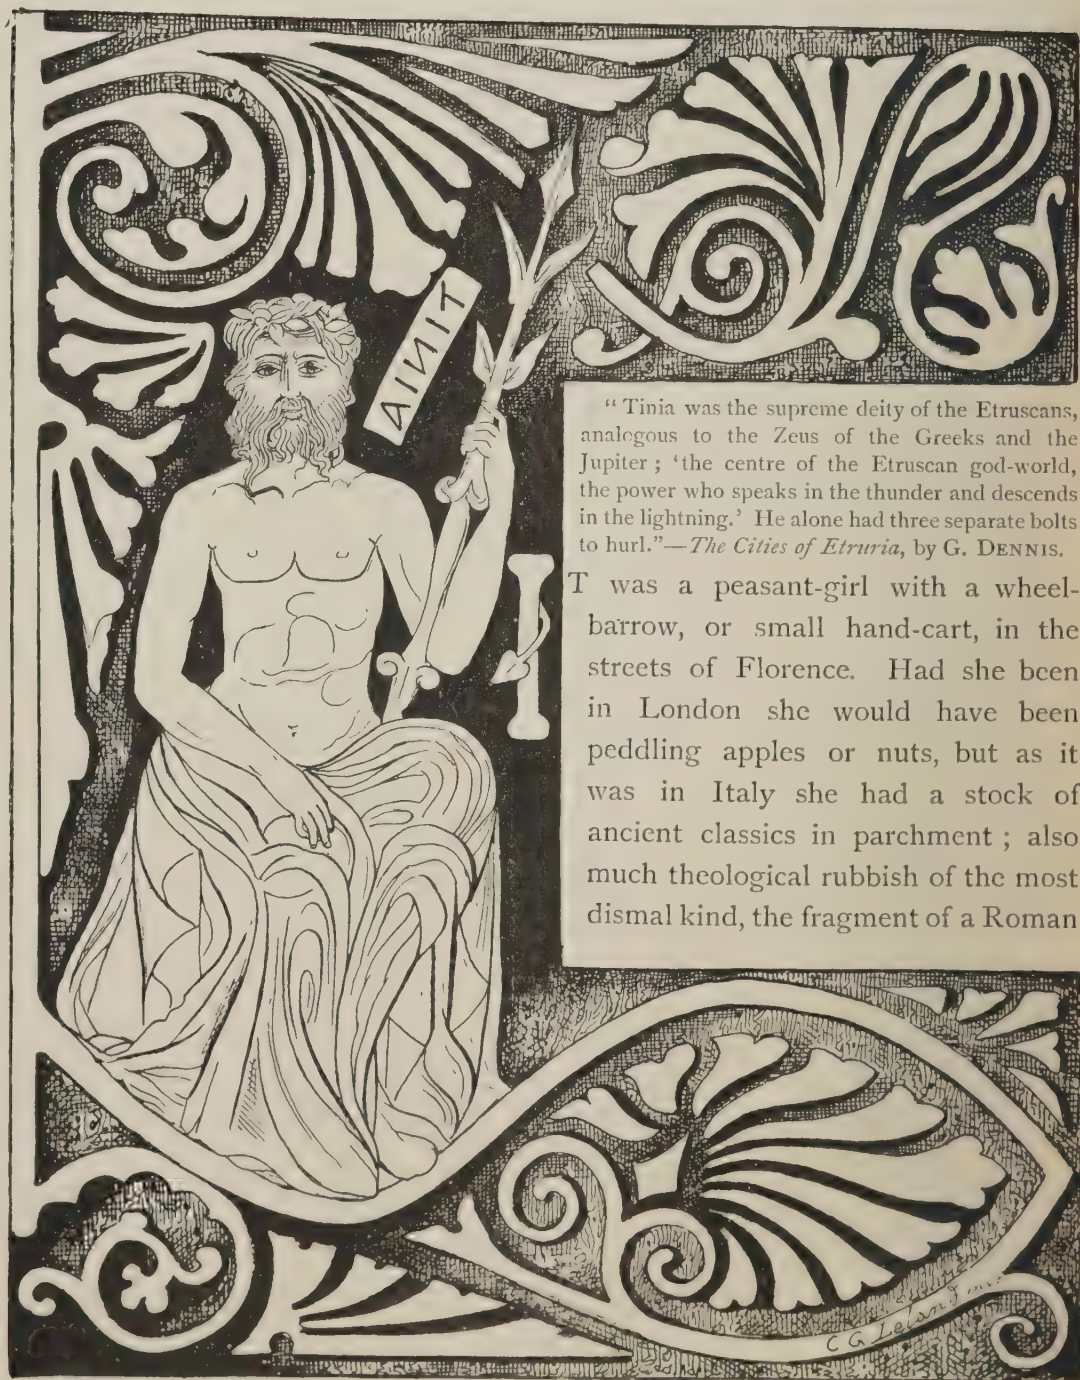 AINIT
“ Tinia was the supreme deity of the Etruscans,
analogous to the Zeus of the Greeks and the
Jupiter ; ‘the centre of the Etruscan god-world,
the power who speaks in the thunder and descends
in the lightning.’ He alone had three separate bolts
to hurl.”—The Cities of Etruria, by G. DENNIS.
IT was a peasant-girl with a wheel-
barrow, or small hand-cart, in the
streets of Florence. Had she been
in London she would have been
peddling apples or nuts, but as it
was in Italy she had a stock of
ancient classics in parchment ; also
much theological rubbish of the most
dismal kind, the fragment of a Roman
C G Leland